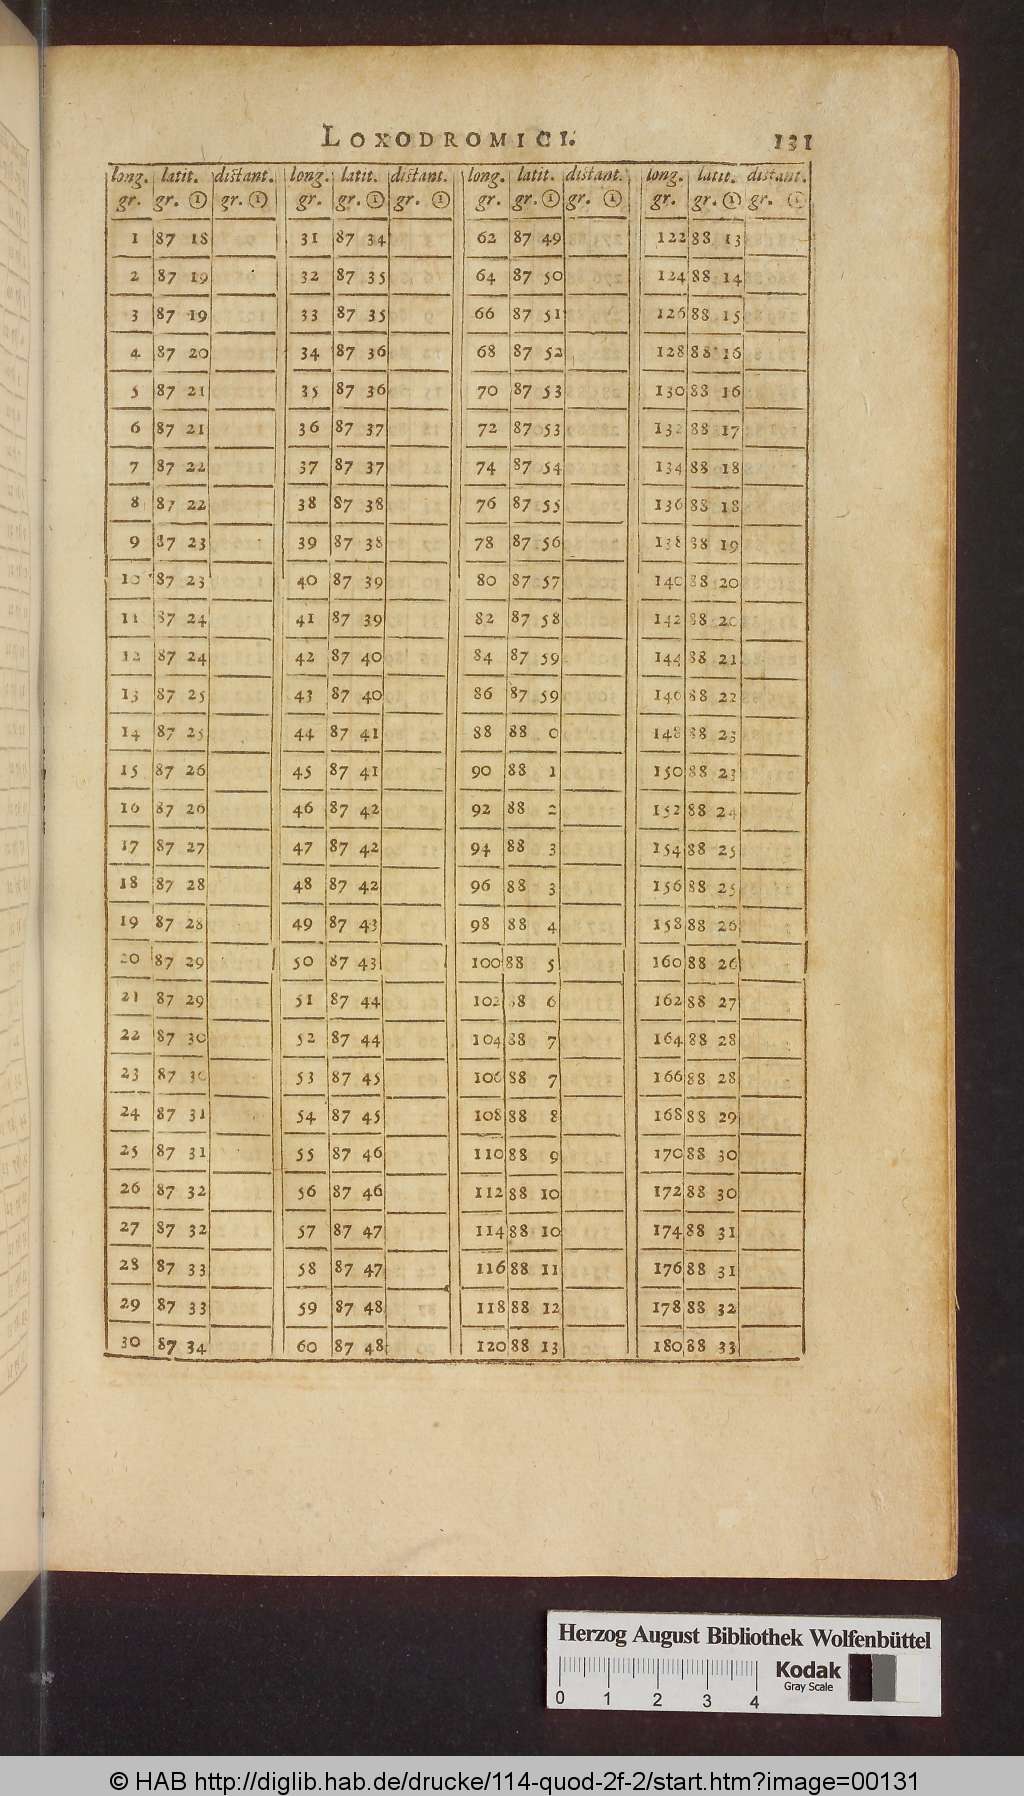 LOXODROMICI. 131
long. latit. distant. long. latit. distant. long. latit. distant. long. latit. distant.
gr. gr. ① gr. ① gr. gr. ① gr. ① gr. gr. ① gr. ① gr. gr. ① gr. ①
1 87 18 31 87 34 62 87 49 122 88 13
2 87 19 32 87 35 64 87 50 124 88 14
3 87 19 33 87 35 66 87 51 126 88 15
4 87 20 34 87 36 68 87 52 128 88 16
5 87 21 35 87 36 70 87 53 130 88 16
6 87 21 36 87 37 72 87 53 132 88 17
7 87 22 37 87 37 74 87 54 134 88 18
8 87 22 38 87 38 76 87 55 136 88 18
9 87 23 39 87 38 78 87 56 138 88 19
10 87 23 40 87 39 80 87 57 140 88 20
11 87 24 41 87 39 82 87 58 142 88 20
12 87 24 42 87 40 84 87 59 144 88 21
13 87 25 43 87 40 86 87 59 146 88 22
14 87 25 44 87 41 88 88 0 148 88 23
15 87 26 45 87 41 90 88 1 150 88 23
16 87 26 46 87 42 92 88 2 152 88 24
17 87 27 47 87 42 94 88 3 154 88 25
18 87 28 48 87 42 96 88 3 156 88 25
19 87 28 49 87 43 98 88 4 158 88 26
20 87 29 50 87 43 100 88 5 160 88 26
21 87 29 51 87 44 102 88 6 162 88 27
22 87 30 52 87 44 104 88 7 164 88 28
23 87 30 53 87 45 106 88 7 166 88 28
24 87 31 54 87 45 108 88 8 168 88 29
25 87 31 55 87 46 110 88 9 170 88 30
26 87 32 56 87 46 112 88 10 172 88 30
27 87 32 57 87 47 114 88 10 174 88 31
28 87 33 58 87 47 116 88 11 176 88 31
29 87 33 59 87 48 118 88 12 178 88 32
30 87 34 60 87 48 120 88 13 180 88 33
Herzog August Bibliothek Wolfenbüttel
Kodak
Gray Scale
0 1 2 3 4
© HAB http://diglib.hab.de/drucke/114-quod-2f-2/start.htm?image=00131